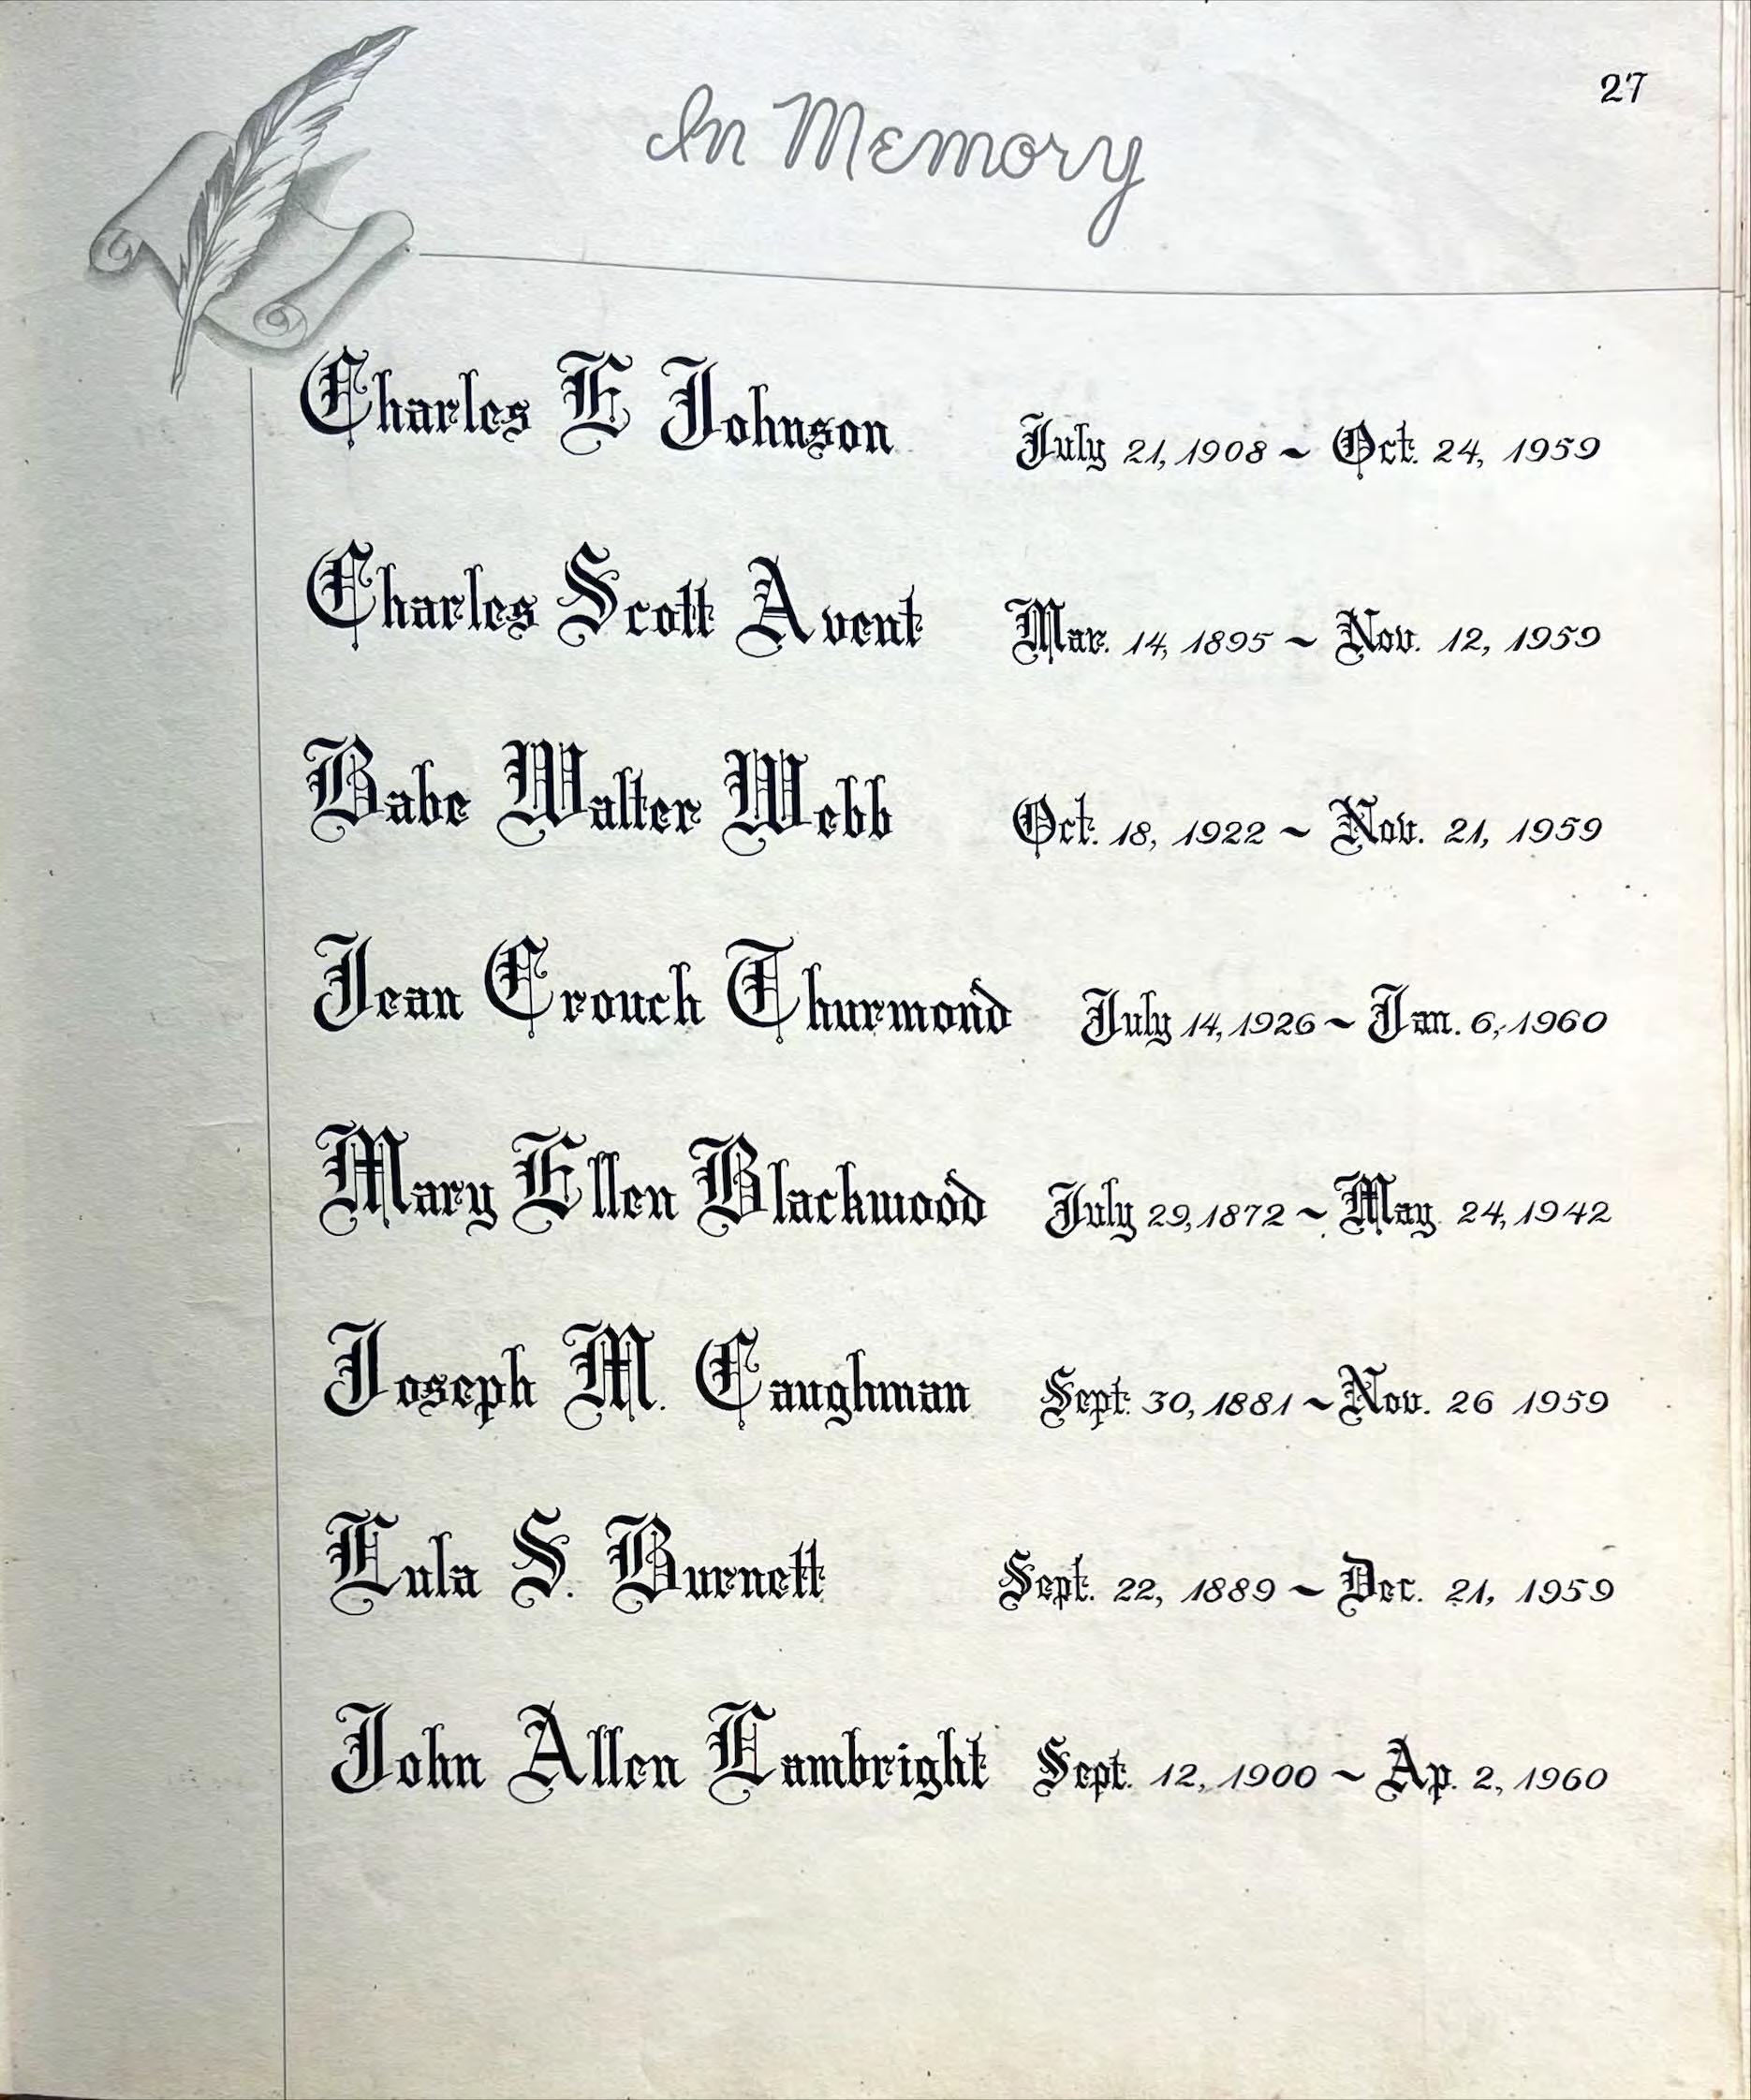 27
In Memory
Charles E Johnson July 21, 1908 ~ Oct. 24, 1959
Charles Scott Avent Mar. 14, 1895 ~ Nov. 12, 1959
Babe Walter Webb Oct. 18, 1922 ~ Nov. 21, 1959
Jean Crouch Thurmond July 14, 1926 ~ Jan. 6, 1960
Mary Ellen Blackwood July 29, 1872 ~ May 24, 1942
Joseph M. Caughman Sept. 30, 1881 ~ Nov. 26 1959
Lula S. Burnett Sept. 22, 1889 ~ Dec. 21, 1959
John Allen Lambright Sept. 12, 1900 ~ Ap. 2, 1960